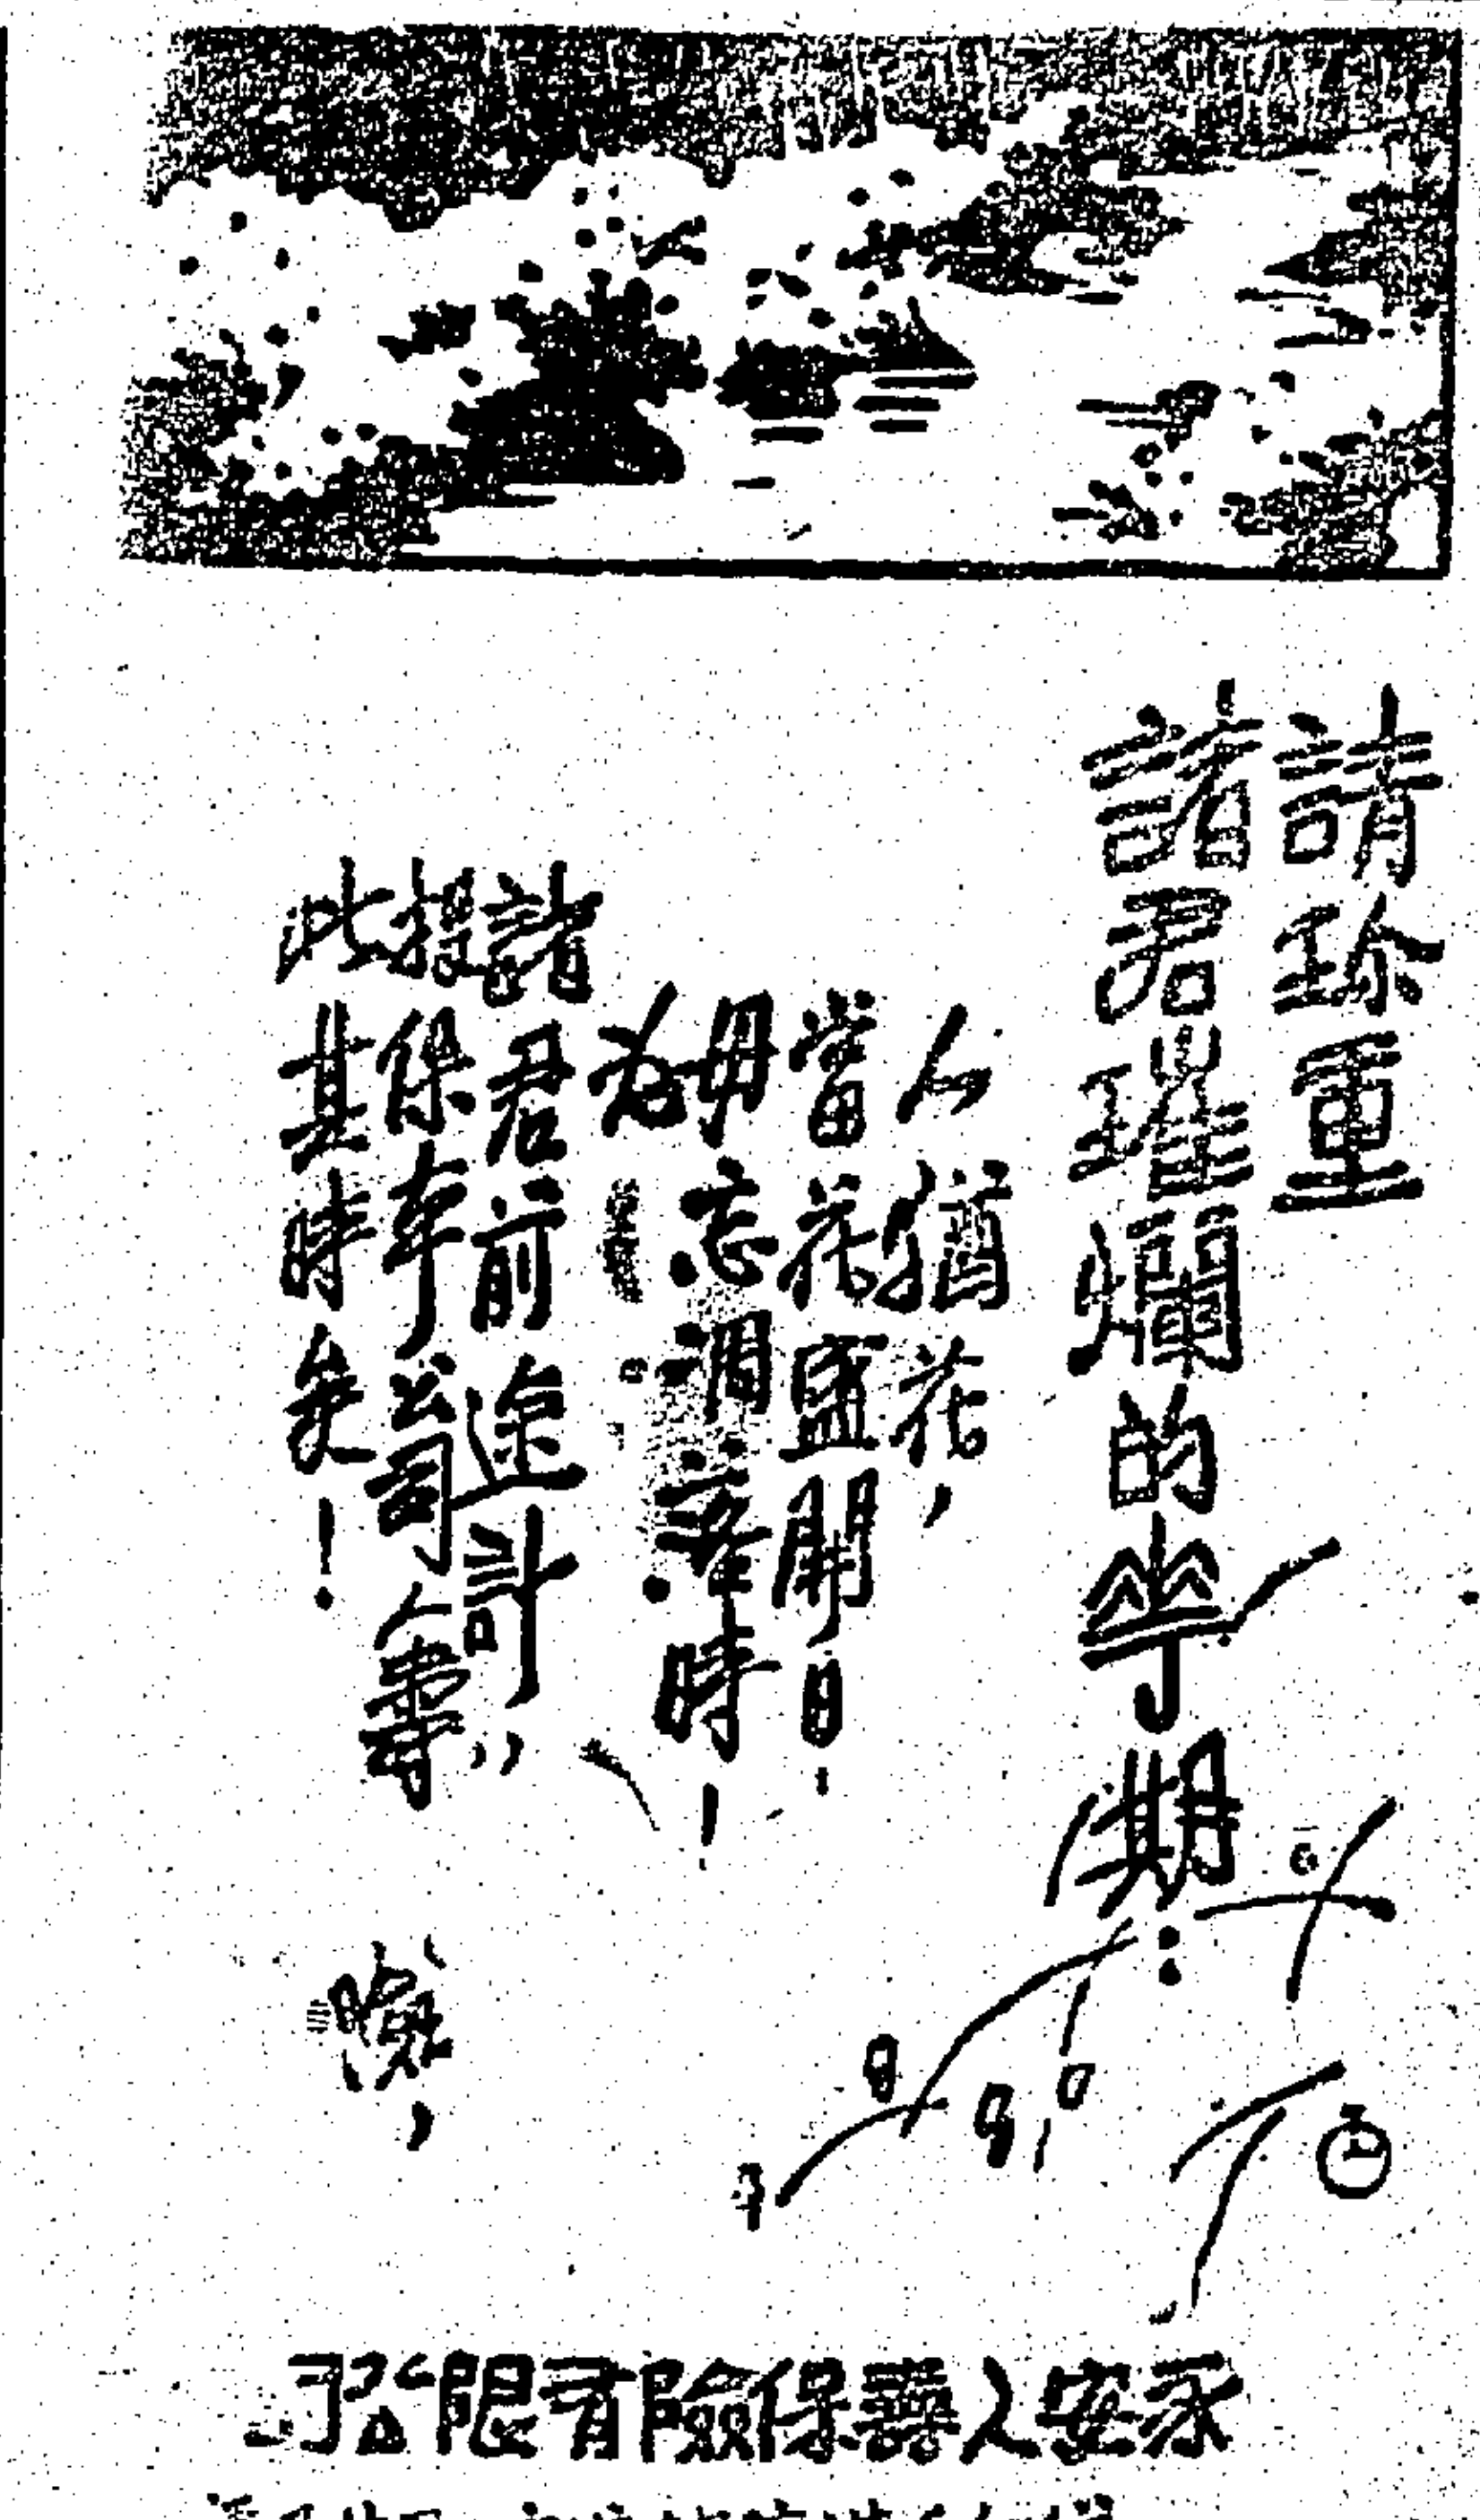 請珍重
諸君璀爛的華期：
人猶花，
當花盛開日
毋忘凋零時！
為
諸君前途計，
投保本公司人壽險，
此其時矣！
永安人壽保險有限公司